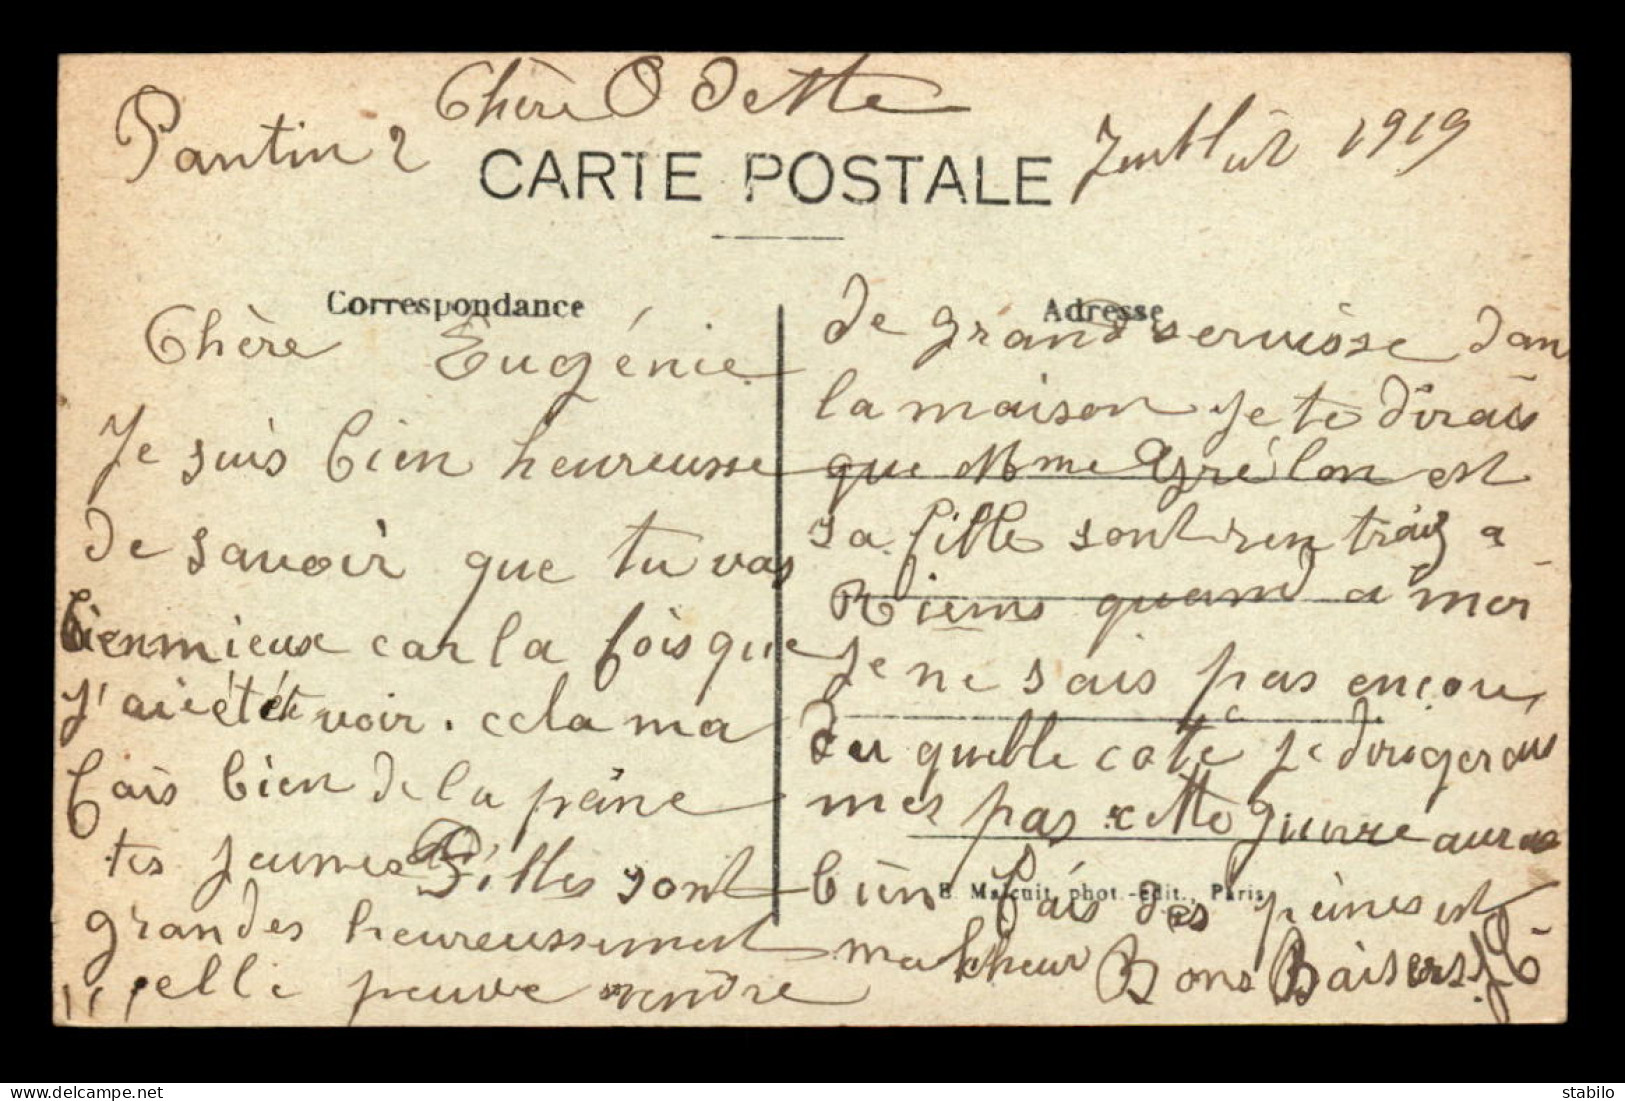 Chère Odette
Pantin 2 Juillet 1919
CARTE POSTALE
Correspondance
Chère Eugénie
Je suis bien heureusse
de savoir que tu vas
bien mieux car la fois que
j'ai été te voir. cela ma
fais bien de la peine
tes jeunes filles sont
grandes heureussement
elle peuve rendre
Adresse
de grand servisse dans
la maison je te dirais
que Mme Grélon est
sa fille sont rentrais a
Riems quand a moi
je ne sais pas encore
du quelle coté je dirigerais
mes pas cette guerre auras
bien fais des peines est
malheur Bons Baisers
E. Malcuit, phot.-édit., Paris
stabilo